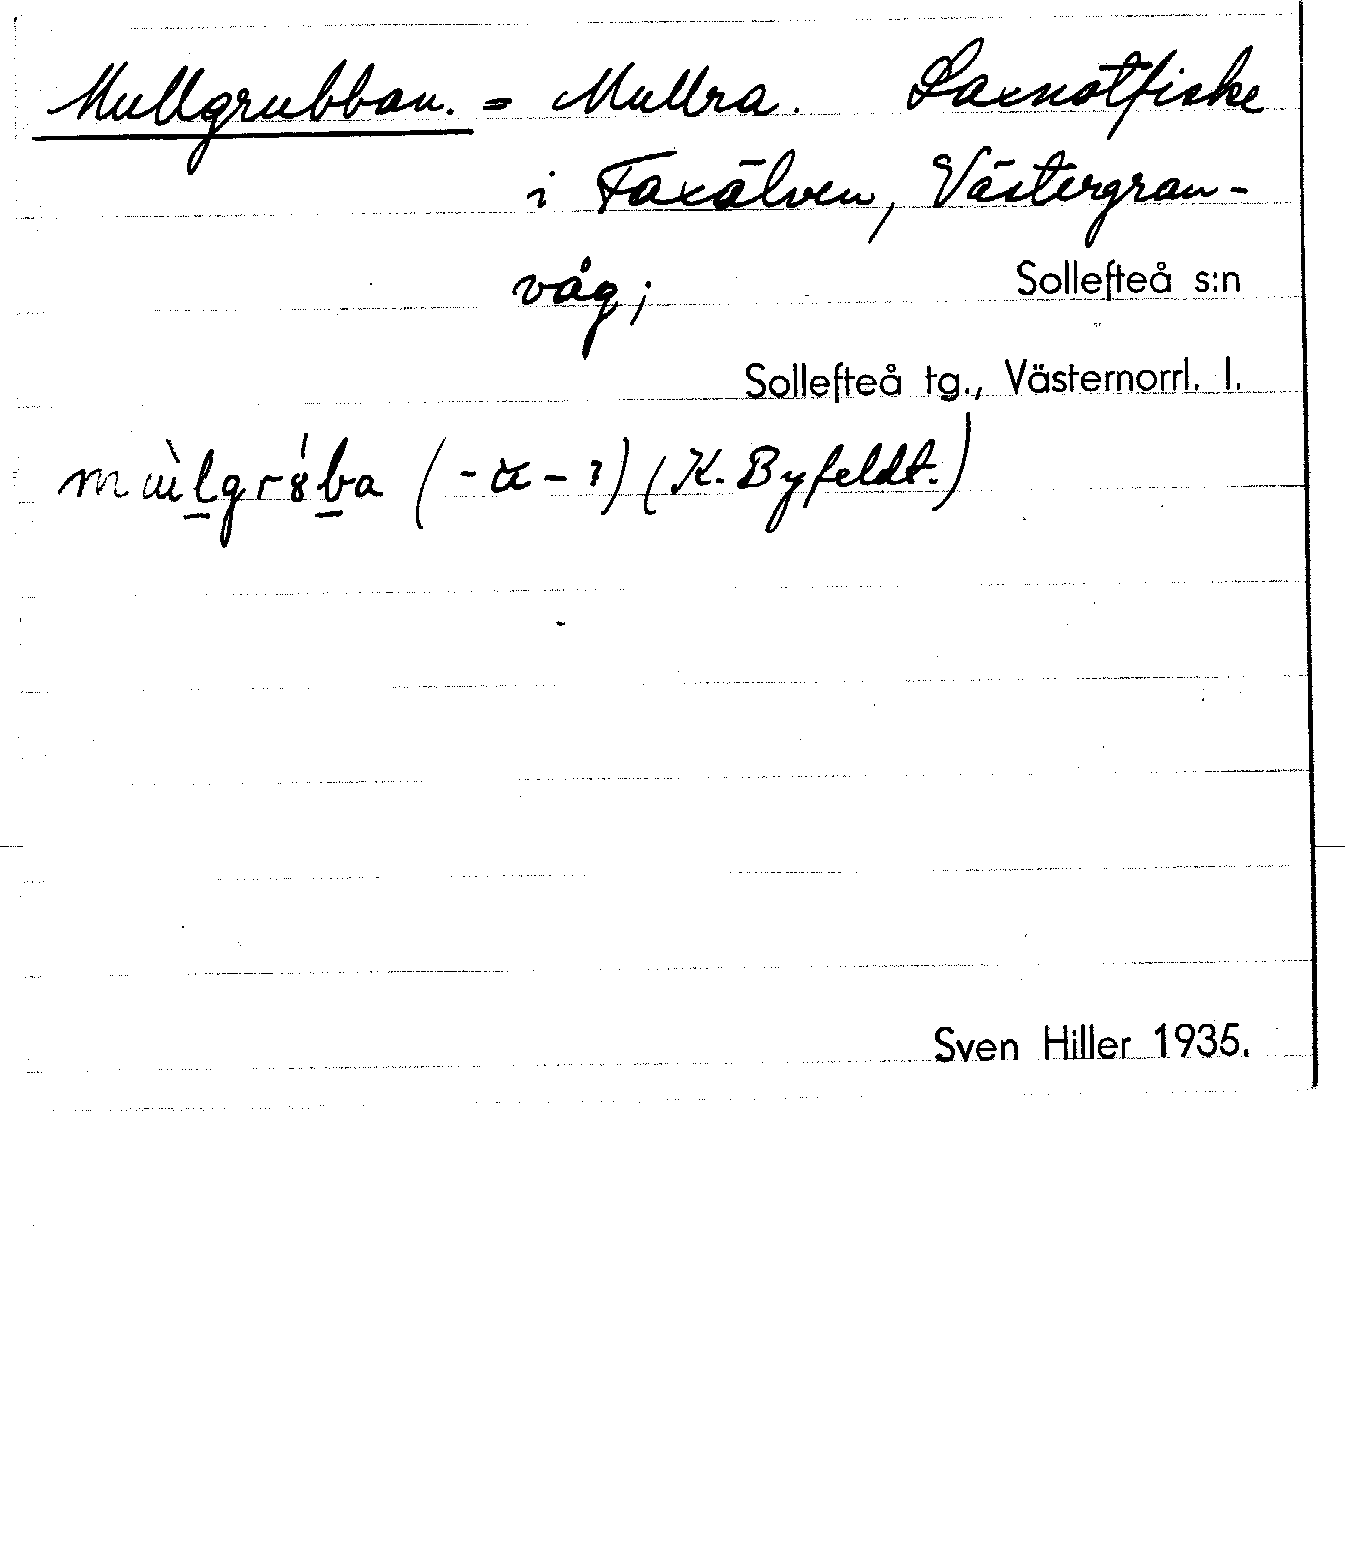 Mullgrubban. = Mullra. Laxnotfiske
i Faxälven, Västergran-
våg; Sollefteå s:n
Sollefteå tg., Västernorrl. l.
(K. Byfeldt.)
Sven Hiller 1935.